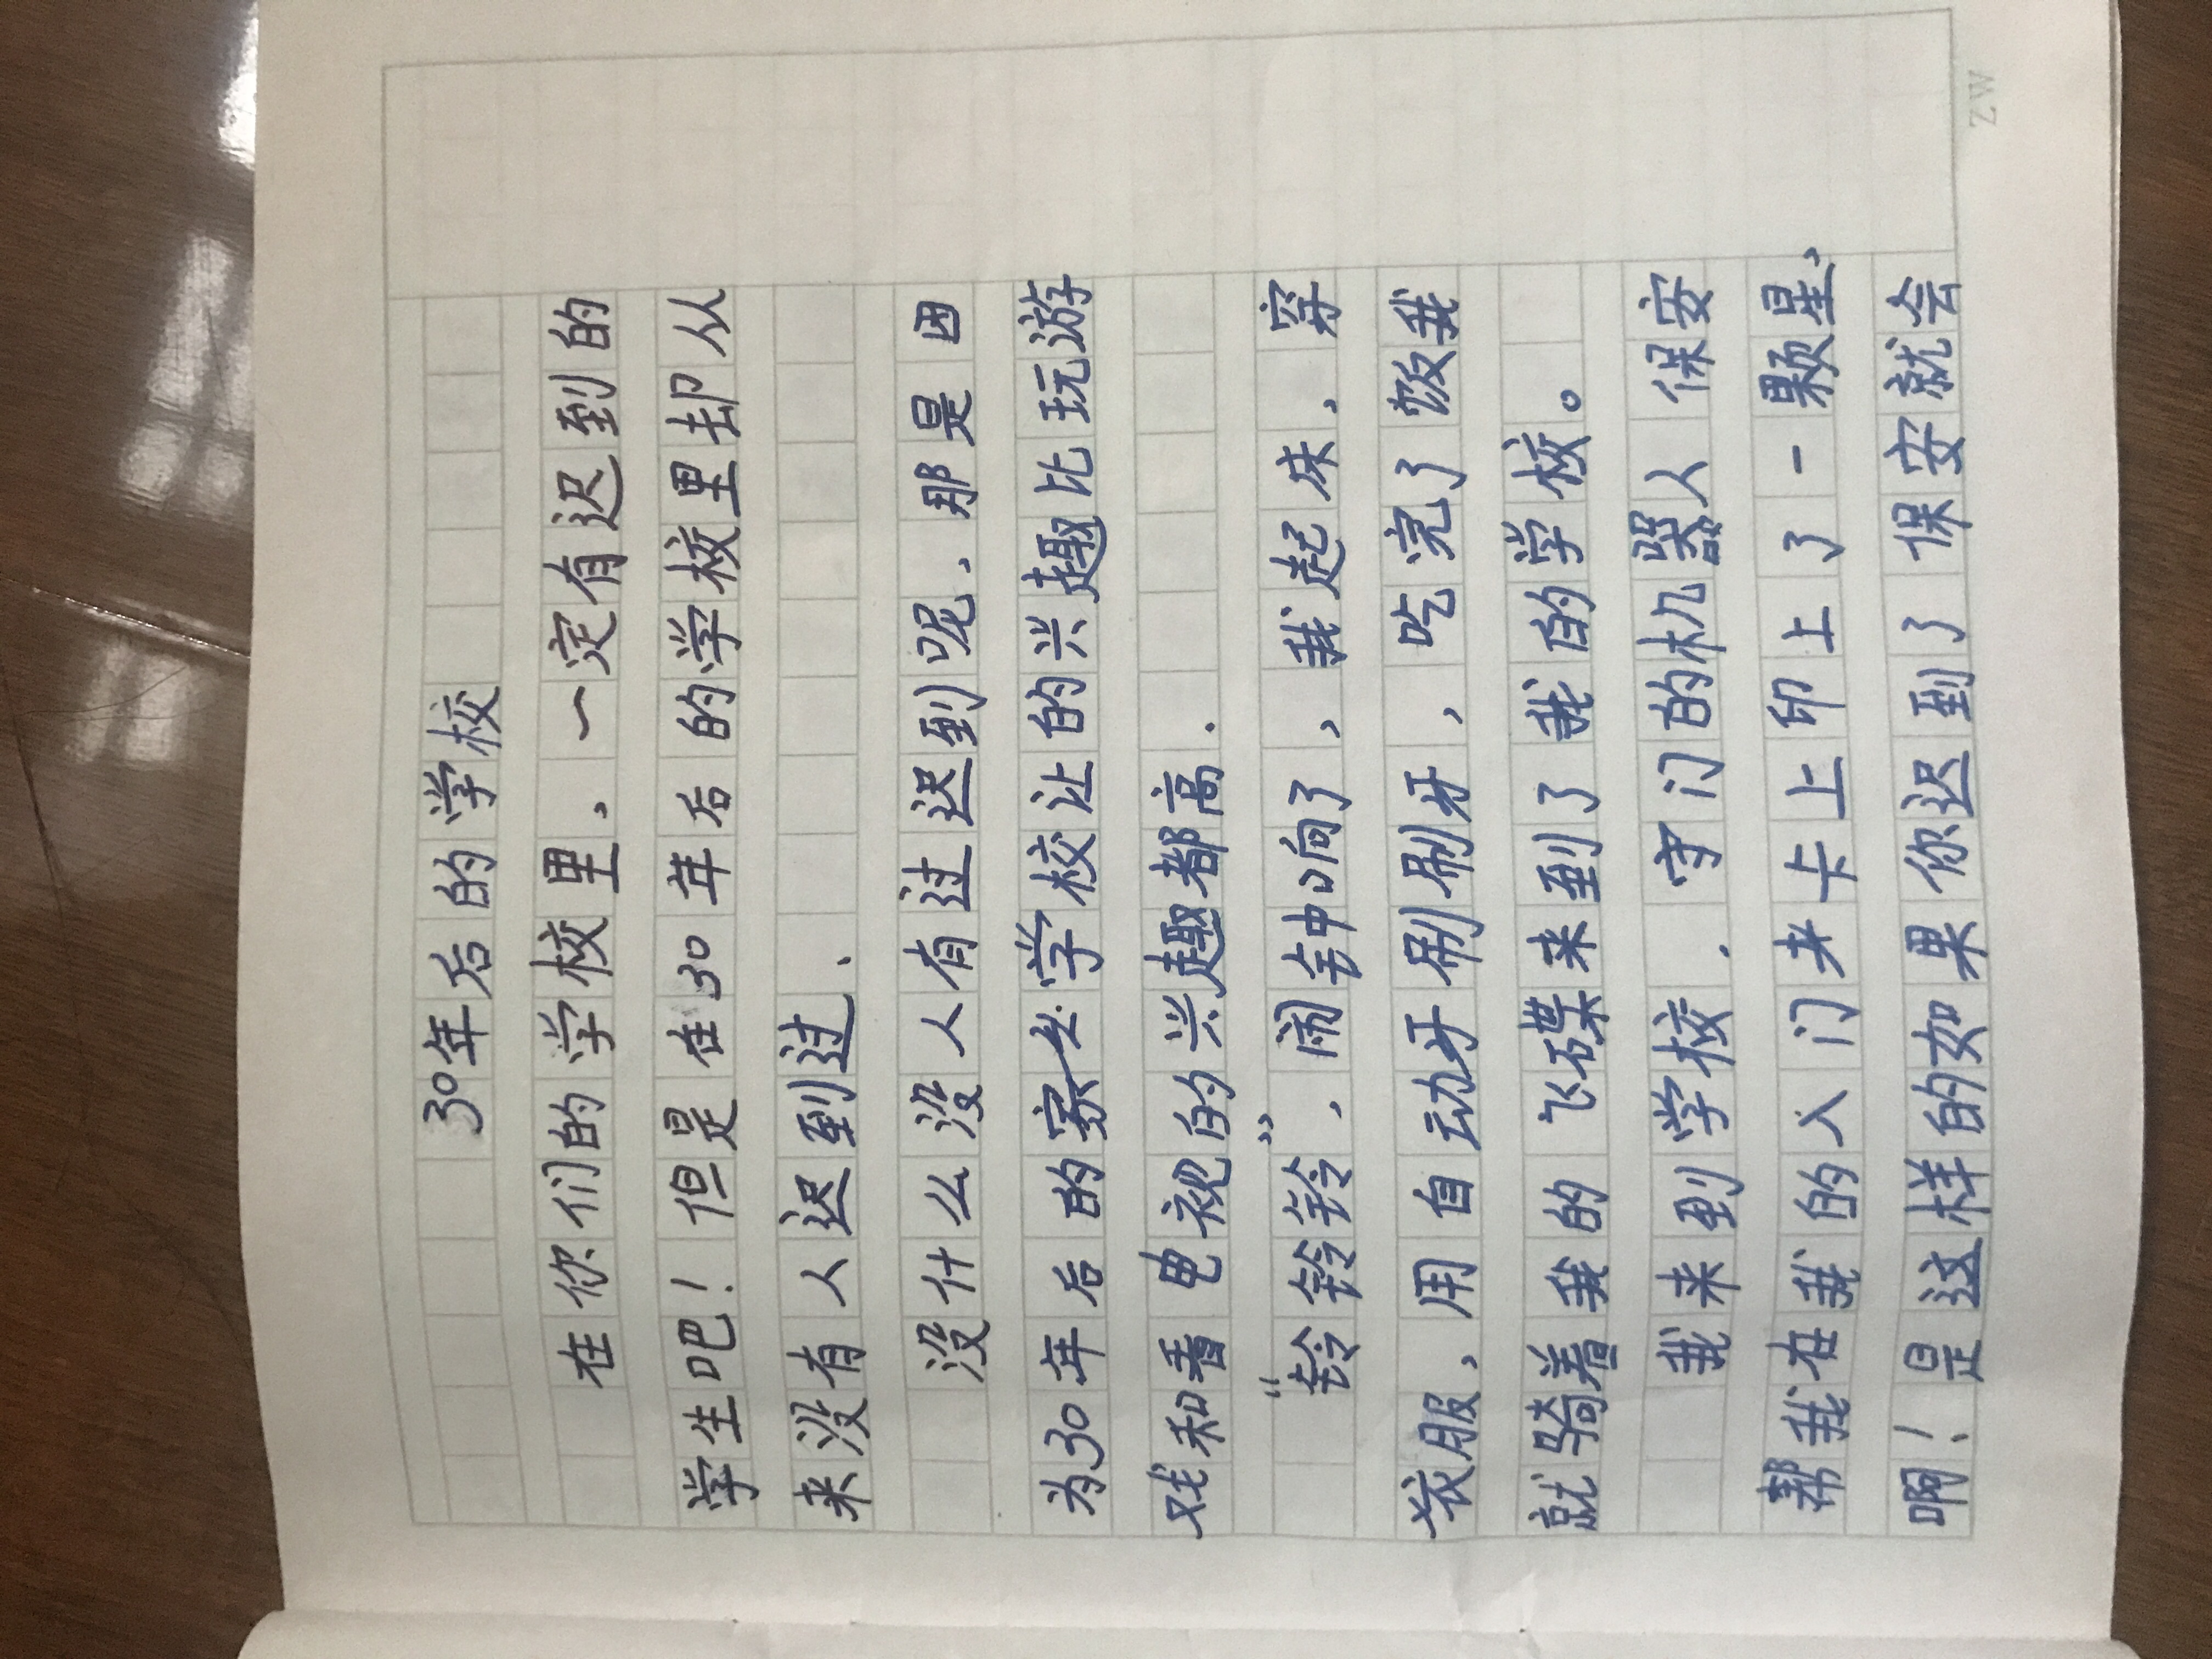 30年后的学校
在你们的学校里，一定有迟到的
学生吧！但是在30年后的学校里却从
来没有人迟到过、
没什么没人有过迟到呢．那是因
为30年后的学校让的兴趣比玩游
戏和看电视的兴趣都高．
“铃铃铃”，闹钟响了，我起床，穿
衣服，用自动牙刷刷牙，吃完了饭我
就骑着我的飞碟来到了我的学校。
我来到学校．守门的机器人保安
帮我在我的入门来卡上印上了一颗星，
啊！是这样的如果你迟到了保安就会
ZW